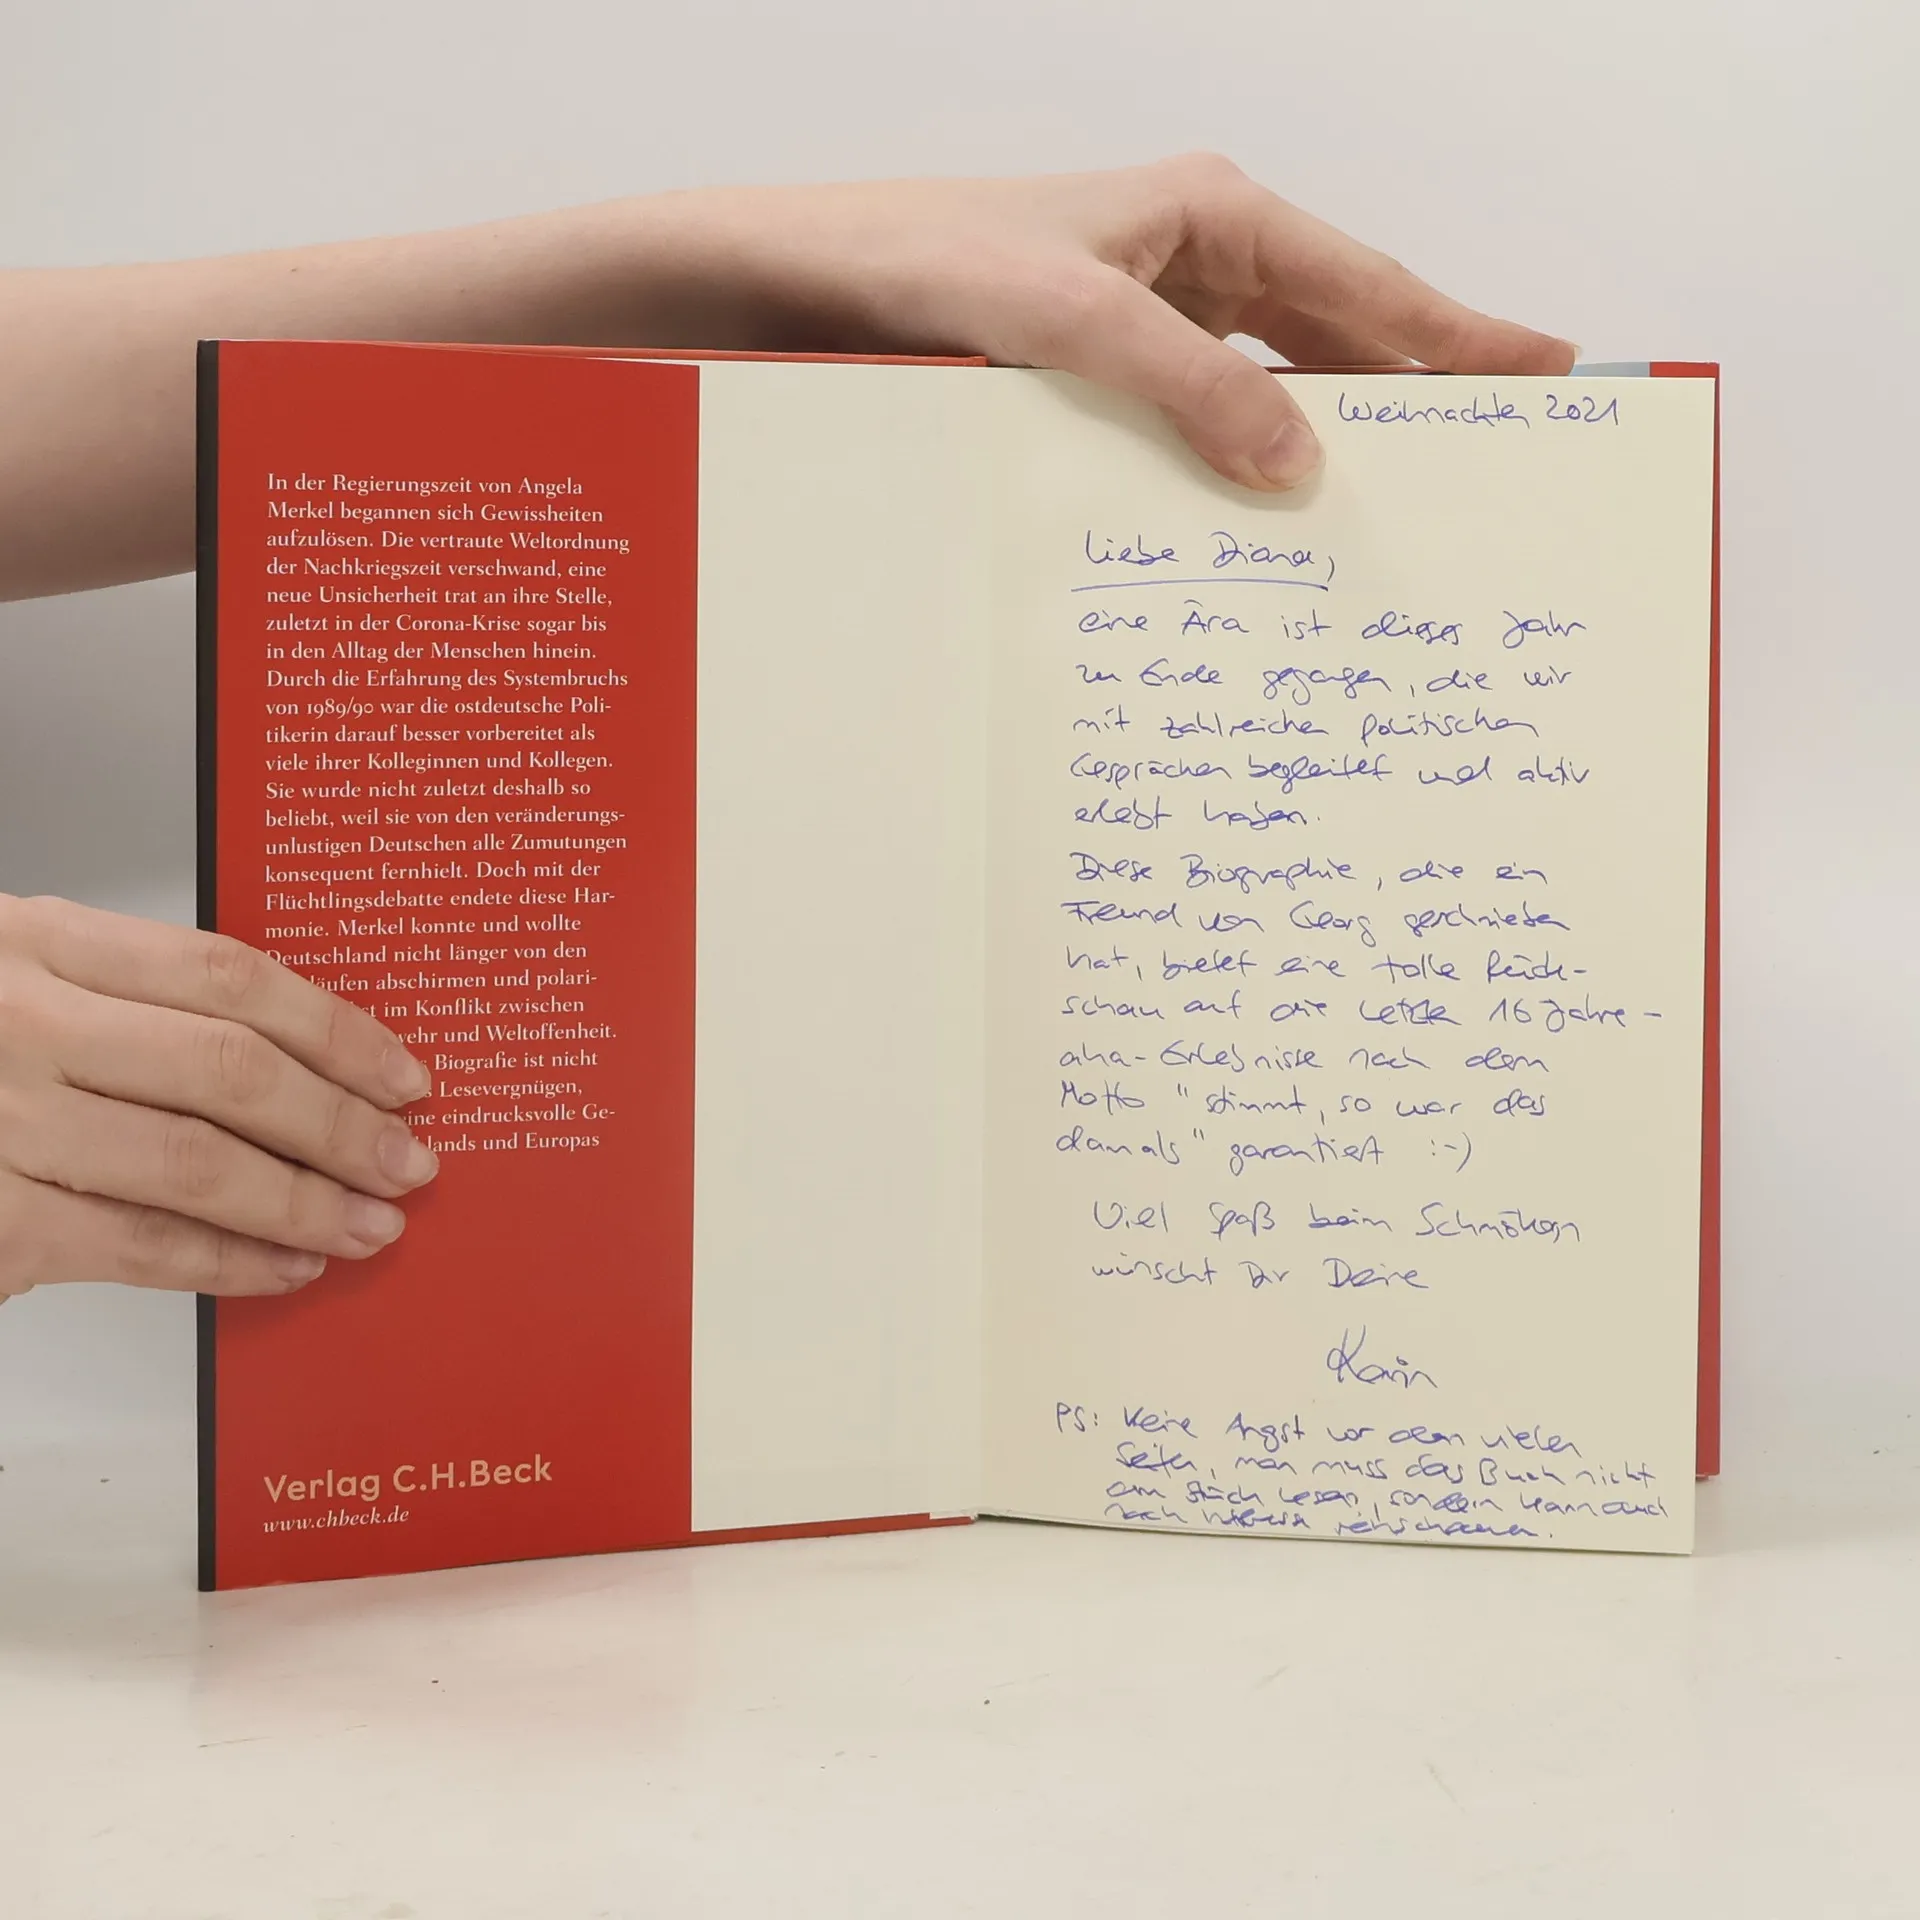 In der Regierungszeit von Angela
Merkel begannen sich Gewissheiten
aufzulösen. Die vertraute Weltordnung
der Nachkriegszeit verschwand, eine
neue Unsicherheit trat an ihre Stelle,
zuletzt in der Corona-Krise sogar bis
in den Alltag der Menschen hinein.
Durch die Erfahrung des Systembruchs
von 1989/90 war die ostdeutsche Poli-
tikerin darauf besser vorbereitet als
viele ihrer Kolleginnen und Kollegen.
Sie wurde nicht zuletzt deshalb so
beliebt, weil sie von den veränderungs-
unlustigen Deutschen alle Zumutungen
konsequent fernhielt. Doch mit der
Flüchtlingsdebatte endete diese Har-
monie. Merkel konnte und wollte
Deutschland nicht länger von den
läufen abschirmen und polari-
st im Konflikt zwischen
wehr und Weltoffenheit.
s Biografie ist nicht
s Lesevergnügen,
ine eindrucksvolle Ge-
lands und Europas
Verlag C.H.Beck
www.chbeck.de
Weihnachten 2021
Liebe Diana,
eine Ära ist dieses Jahr
zu Ende gegangen, die wir
mit zahlreichen politischen
Gesprächen begleitet und aktiv
erlebt haben.
Diese Biographie, die ein
Freund von Georg geschrieben
hat, bietet eine tolle Rück-
schau auf die letzte 16 Jahre -
aha-Erlebnisse nach dem
Motto "stimmt, so war das
damals" garantiert :-)
Viel Spaß beim Schmökern
wünscht Dir Deine
Karin
PS: Keine Angst vor den vielen
Seiten, man muss das Buch nicht
am Stück lesen, sondern kann auch
nach reinschauen.